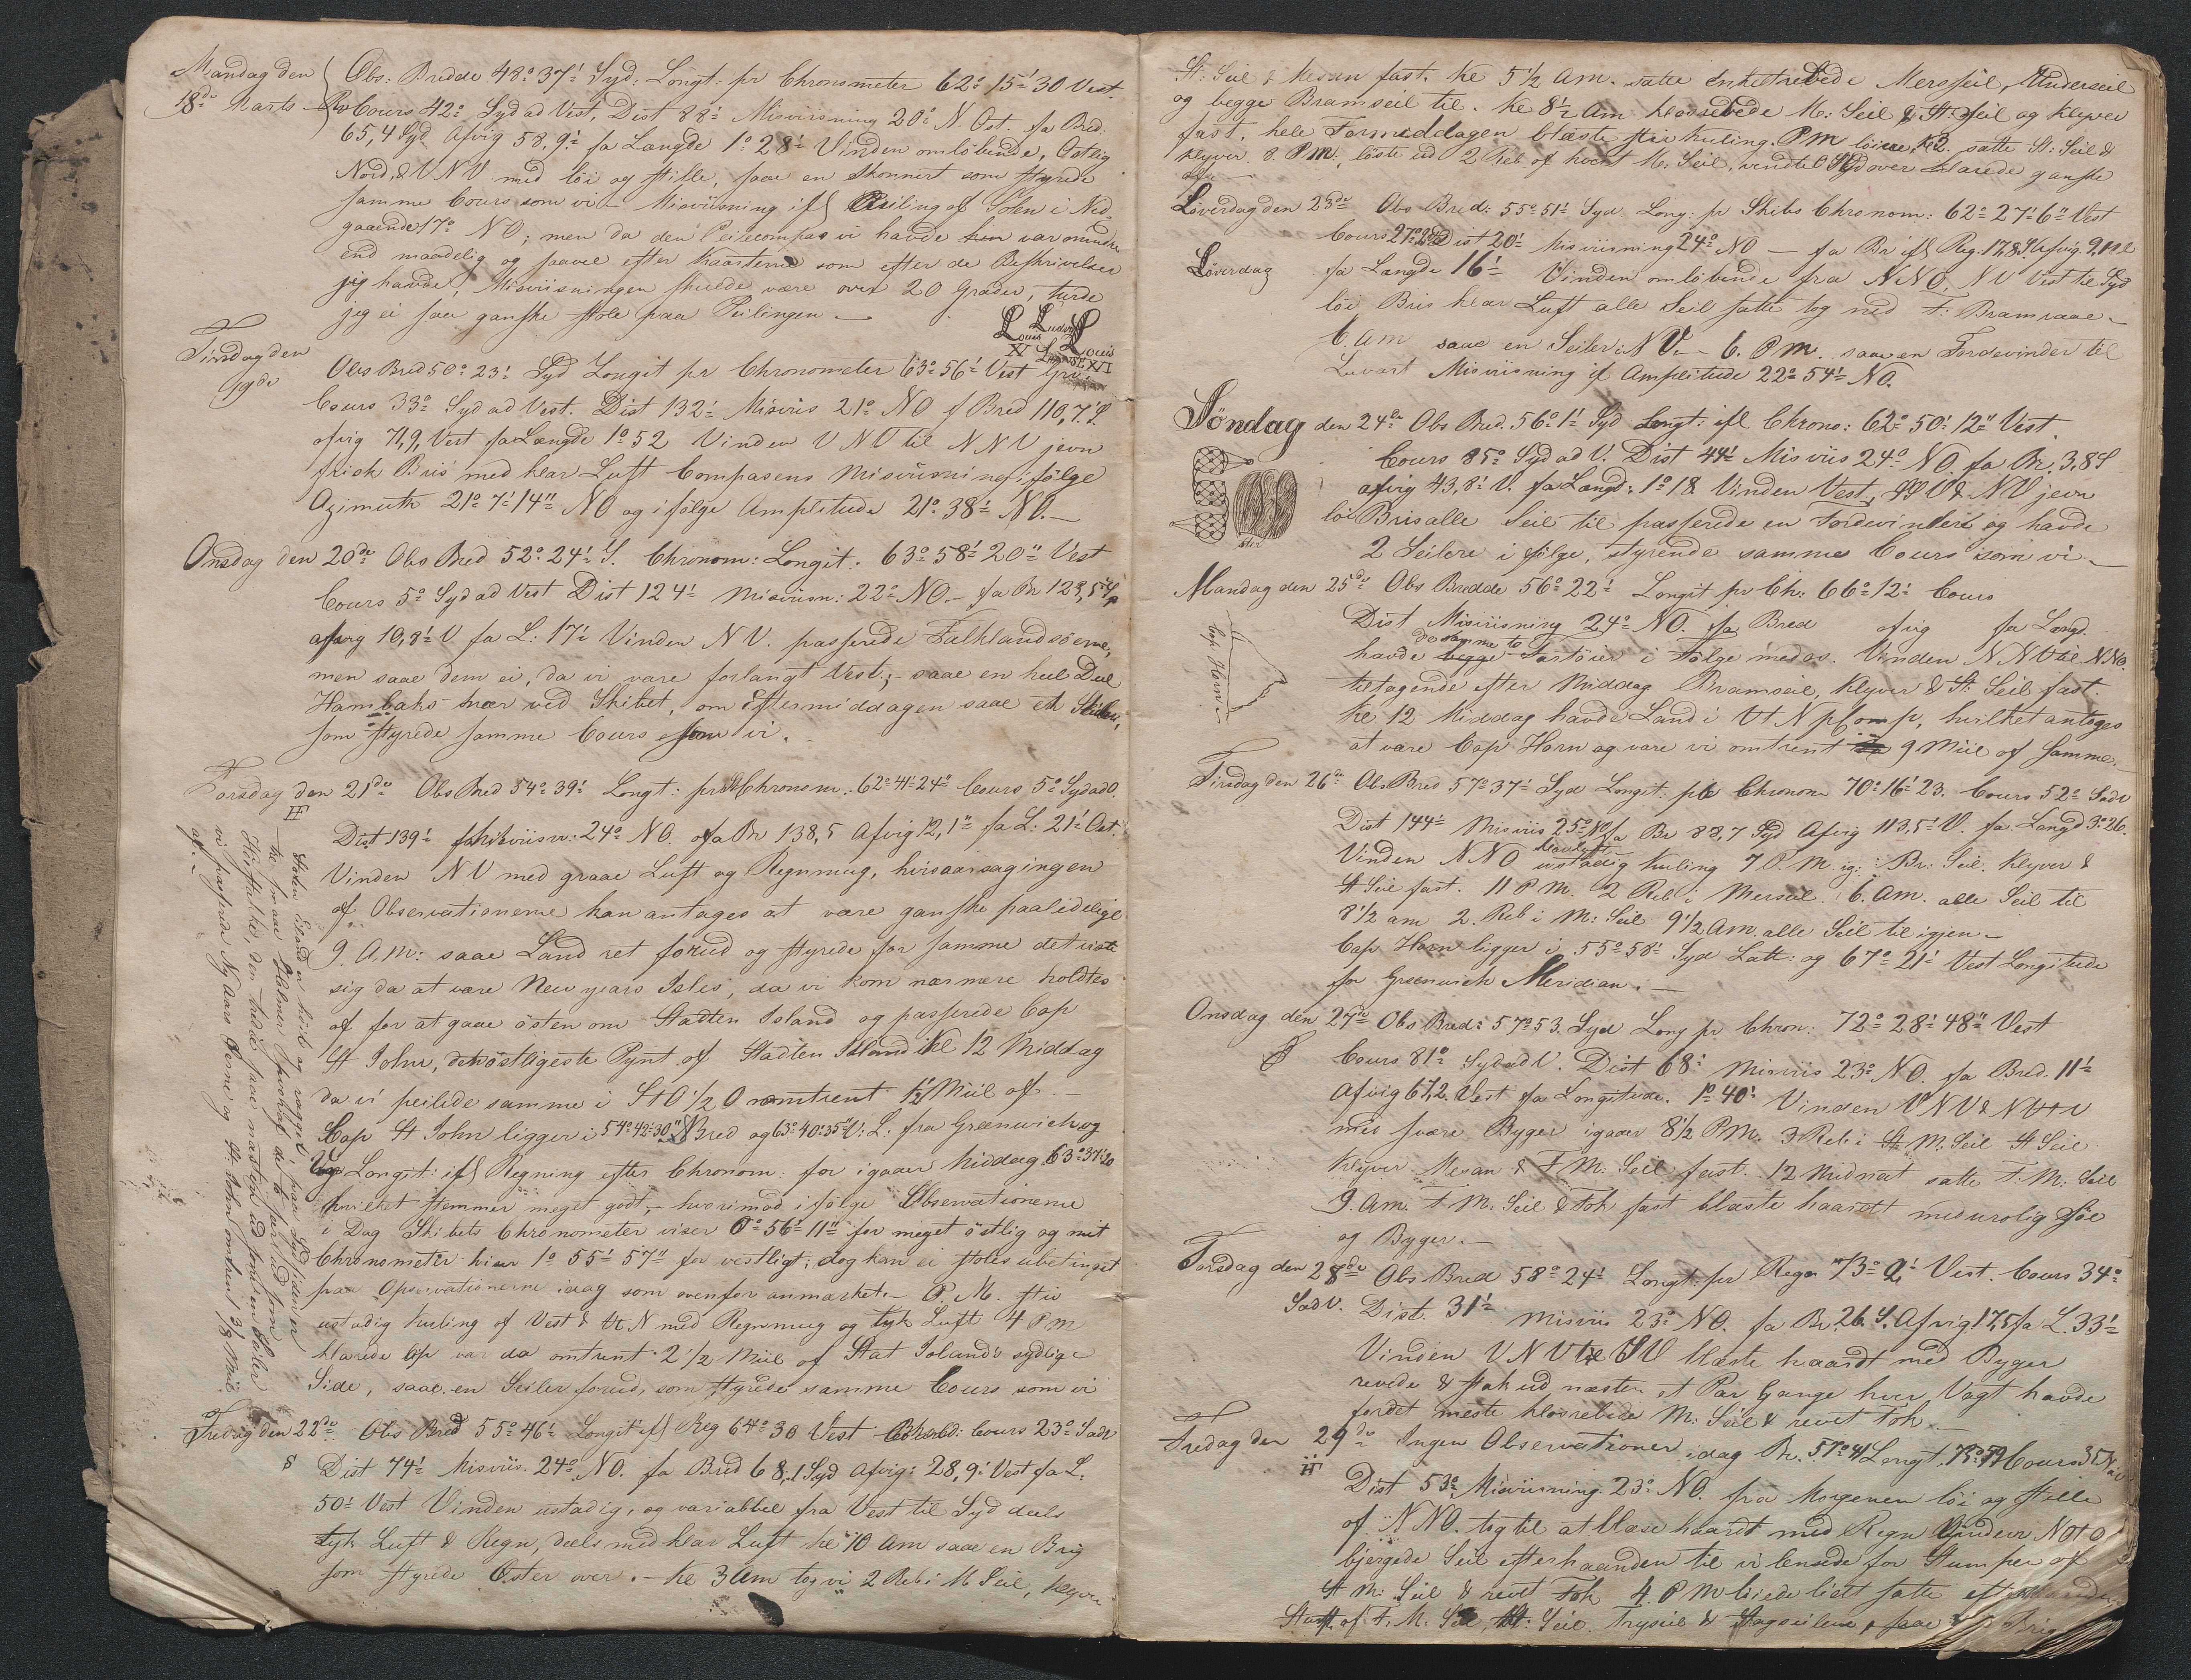 Mandag den
18de Marts
Obs: Bredde 48° 37' Syd. Longt: pr Chronometer 62° 15' 30 Vest.
Rv Cours 42° Syd ad Vest, Dist 88' Misviisning 20° N. Ost. fa Bred:
65,4 Syd Afvig 58,9' fa Længde 1° 28' Vinden omløbende, Ostlig
Nord, & VNV med løi og stille, saae en Skonnert som styrede
samme Cours som vi – Misviisning ifl Peiling af Solen i Ned-
gaaende 17° NO; men da den Peilecompas vi havde var mindre
end maadelig og saavel efter Kaarterne som efter de Beskrivelser
jeg havde, Misviisningen skulde være over 20 Grader, turde
jeg ei saa ganske stole paa Peilingen –
Louis Ludvig Louis
XV XVI
Tirsdag den
19de
Obs Bred 50° 23' Syd Longit pr Chronometer 63° 56' Vest
Cours 33° Syd ad Vest. Dist 132' Misviis 21° NO f Bred 110,7' S.
afvig 71,9, Vest fa Længde 1° 52 Vinden VNV til NNV jevn
frisk Bris med klar Luft Compasens Misviisning ifølge
Azimuth 21° 7' 14" NO og ifølge Amplitude 21° 38' NO. –
Onsdag den 20de Obs Bred 52° 24' S. Chronom: Longit. 63° 58' 20" Vest
Cours 5° Syd ad Vest Dist 124' Misviisn: 22° NO. – fa Br 123,5
afvig 10,8' V fa L: 17' Vinden NV. passerede Falklandsøerne,
men saae dem ei, da vi vare forlangt Vest; – saae en heel Deel
Hambaks nær ved Skibet, om Eftermiddagen saae et Skib,
som styrede samme Cours som vi. –
Torsdag den 21de Obs Bred 54° 39' Longt: pr Chronom. 62° 41' 24" Cours 5° Syd ad O.
Dist 139' Misviisn: 24° NO. fa Br 138,5 Afvig 12,1" fa L: 21' Ost.
Vinden NV med graae Luft og Regnmug, hvisaarsag ingen
af Observationerne kan antages at være ganske paalidelige
9. A.M: saae Land ret forud og styrede for samme det viste
sig da at være New years Isles, da vi kom nærmere holdtes
af for at gaae østen om Stadten Island og passerede Cap
St John, den østligeste Pynt af Stadten Island Kl 12 Middag
da vi peilede samme i StO 1/2 O omtrent 1 1/2 Miil af. –
Cap St John ligger i 54° 42' 30" S Bred og 63° 40' 35" V: L: fra Greenwich og
Longit: ifl Regning efter Chronom: for igaar Middag 63° 37' 20
hvilket stemmer meget godt, – hvorimod ifølge Observationerne
i Dag Skibets Chronometer viser 0° 56' 11" for meget østlig og mit
Chronometer 1° 55' 57" for vestligt; dog kan ei stoles ubetinget
paa Observationerne idag som ovenfor anmærket. – P. M. stiv
ustadig Kuling af Vest & VtN med Regnmug og tyk Luft 4 P M
klarede op var da omtrent 2 1/2 Miil af Stat Island's sydlige
Side, saae en Seiler forud, som styrede samme Cours som vi
Fredag den 22de Obs Bred 55° 46' Longit ifl Reg 64° 30 Vest Cours 23° SadV
Dist 74' Misviis. 24° NO. fa Bred 68,1 Syd Afvig: 28,9' Vest fa L.
50' Vest Vinden ustadig, og variabbel fra Vest til Syd deels
tyk Luft & Regn, deels med klar Luft Kl 10 Am saae en Brig
som styrede Øster over. – Kl 3 Am tog vi 2 Reb i M Seil, Klyver
Staten Eiland er høit og raget paa Sydsiden er
Høi spidse, der tredie saae næsten ud som en Kaller
vi passerede Ny Aars Øerne og St. John omtrent 3/8 Miil
af. –
St: Seil & Mesan fast. Kl 5 1/2 Am. satte enkeltrebede Mersseil, Underseil
og begge Bramseil til. Kl 8 1/2 Am klosrebede M: Seil & St: Seil og Klyver
fast, hele Formiddagen blæste stiv Kuling. PM løiede, Kl 2. satte St: Seil &
Klyver. 8 PM. løste ud 2 Reb af hvert M: Seil, vendte Syd over klarede ganske
af –
Løverdag den 23de Obs Bred: 55° 51' Syd Long: pr Skibs Chronom: 62° 27' 6" Vest
Løverdag
Cours 27° Dist 20' Misviisning 24° NO – fa Br ifl Reg. 17,8' S Afvig. 9,1
fa Længde 16' Vinden omløbende fra NNO, NV Vest til Syd
løi Bris klar Luft alle Seil satte tog ned F: Bramraae –
6. Am saae en Seiler i NV. – 6. P M. saae en Fordevinder til
Luvart Misviisning if Amplitude 22° 54' NO.
Søndag den 24de Obs Bred. 56° 1' Syd Longt: ifl Chrono: 62° 50' 12" Vest
Cours 85° Syd ad V. Dist 44' Misviis 24° NO. fa Br. 3,8 S
afvig 43,8' V. fa Længd: 1° 18 Vinden Vest, & NV jevn
løi Bris alle Seil til passerede en Fordevinder og havde
2 Seilere i følge, styrende samme Cours som vi –
Mandag den 25de Obs Bredde 56° 22' Longit pr Ch: 66° 12' Cours
Dist Misviisning 24° NO. fa Bred afvig fa Længd.
de samme to
havde begge Fartøier i Følge med os. Vinden NNV til NNO.
tiltagende efter Middag Bramseil, Klyver & St: Seil fast.
Kl 12 Middag havde Land i VtN p Comp, hvilket antages
at være Cap Horn og vare vi omtrent 9 Miil af samme. –
Cap Horn
Tirsdag den 26de Obs Bred 57° 37' Syd Longit: pr Chronom 70° 16' 23. Cours 52° SadV
Dist 144' Misviis 25° NO fa Br 88,7 Syd Afvig 113,5' V. fa Længd 3° 26.
Vinden NNO ustadig Kuling 7 P. M. ig: Br: Seil. Klyver &
St Seil fast. 11 P M. 2 Reb i Mersseil. 6. Am. alle Seil til
8 1/2 am 2. Reb i M: Seil 9 1/2 Am. alle Seil til igjen –
Cap Horn ligger i 55° 58' Syd Latt: og 67° 21' Vest Longitude
for Greenwich Meridian. –
Onsdag den 27de Obs Bred: 57° 53. Syd Long pr Chron: 72° 28' 48" Vest
Cours 81° Syd ad V. Dist 68' Misviis 23° NO. fa Bred. 11'
Afvig 67,2. Vest fa Longitude. 1° 40' Vinden VNV & NVtV
med svære Byger igaar 8 1/2 P.M. 3 Reb i St M: Seil St Seil
Klyver Mesan & F M: Seil fast. 12 Midnat satte F. M: Seil
9. Am. F M. Seil & Fok fast blæste haardt med urolig Søe
og Byger. –
Torsdag den 28de Obs Bred 58° 24' Longt: pr Regn 73° 2' Vest. Cours 34°
SadV. Dist. 31' Misviis 23° NO. fa Br. 26. S. Afvig. 17,5 fa L. 33'
Vinden VNV til SV blæste haardt med Byger
revede & stak ud næsten et Par Gange hver Vagt havde
fordet meste klosrebede M: Seil & revet Fok –
Fredag den 29de Ingen Observationer idag Br. 57° 41 Longt. Cours
Dist 53° Misviisning. 23° NO. fra Morgenen løi og stille
af NNO. tog til at blæse haardt med Regn Vinden NOtO
bjergede Seil efterhaanden til vi lensede for Stumpen af
St M: Seil & revet Fok 4. P M løiede lidt satte
Stump af F. M: Seil, St: Seil. Tryseil & Stagseilene, saae Brig